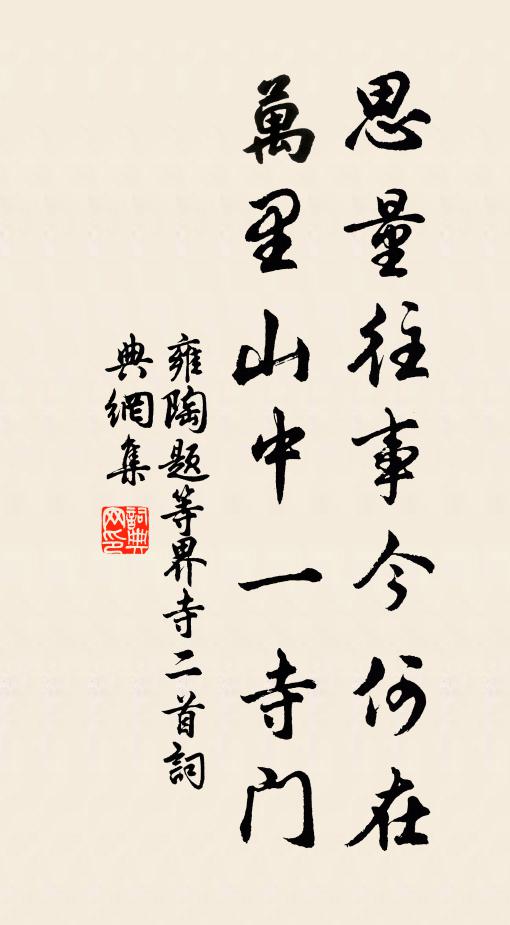 思量往事今何在
萬里山中一寺門
雍陶題等界寺二首詞
典網集
詞典
网印